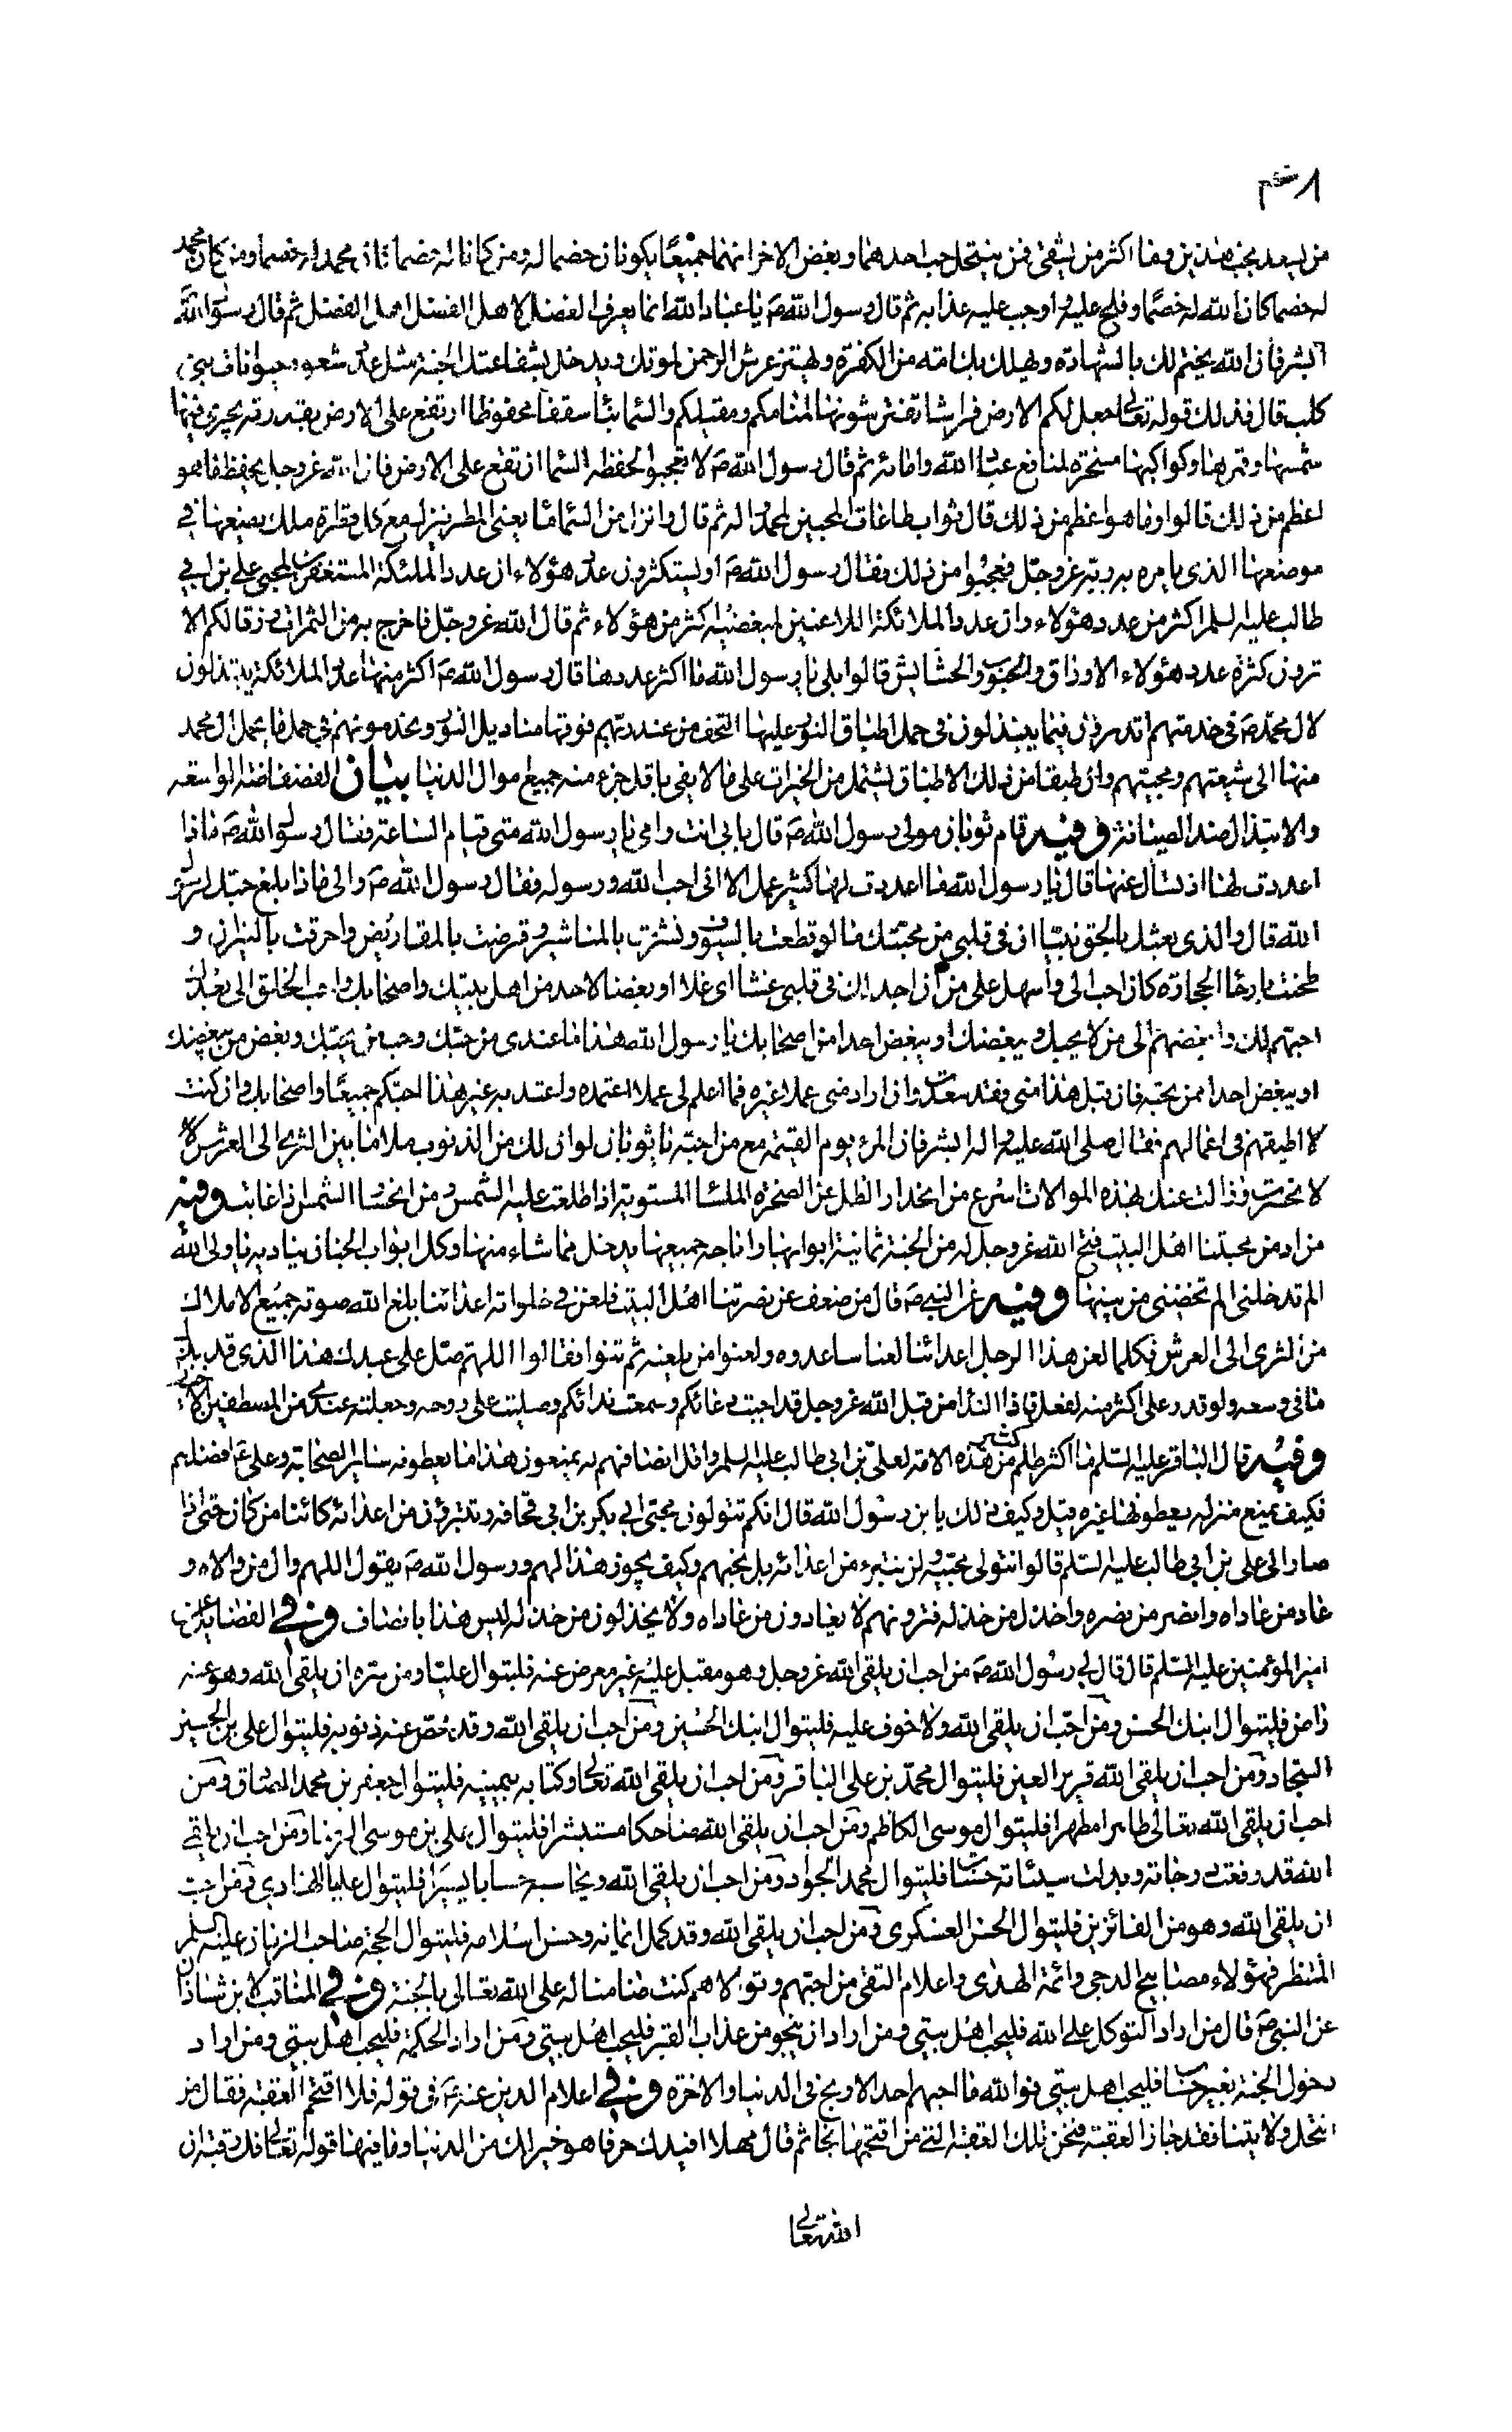 من يسعد بحب هذين وما اكثر من يشقى فمن ينتحل حب احدهما وبغض الاخر انهما جميعا يكونان خصما له ومن كانا له خصما كان محمد له خصما ومن كان محمد
له خصما كان الله له خصما وفلج عليه واوجب عليه عذابه ثم قال رسول الله ص يا عباد الله انما يعرف الفضل لاهل الفضل اهل الفضل ثم قال رسول الله
ابشر فان الله يختم لك بالشهادة ويهلك بك امة من الكفرة ويهتز عرش الرحمن لموتك ويدخل بشفاعتك الجنة مثل عدد شعور حيوانات بني
كلب قال فذلك قوله تعالى جعل لكم الارض فراشا تفترشونها لمنامكم ومقيلكم والسماء بناء سقفا محفوظا ارتفع على الارض بقدرته يجري فيها
شمسها وقمرها وكواكبها مسخرة لمنافع عباد الله وامائه ثم قال رسول الله ص لا تعجبوا لحفظه السما ان تقع على الارض فان الله عز وجل يحفظ ما هو
اعظم من ذلك قالوا وما هو اعظم من ذلك قال ثواب طاعات المحبين لمحمد واله ثم قال وانزل من السماء ماء يعني المطر ينزل مع كل قطرة ملك يضعها في
موضعها الذي يامره به ربه عز وجل فعجبوا من ذلك فقال رسول الله ص اوتستكثرون عدد هؤلاء ان عدد الملئكة المستغفرين لمحبي علي بن ابي
طالب عليه السلم اكثر من عدد هؤلاء وان عدد الملائكة اللاعنين لمبغضيه اكثر من هؤلاء ثم قال الله عز وجل فاخرج به من الثمرات رزقا لكم الا
ترون كثرة عدد هؤلاء الاوراق والحبوب والحشايش قالوا بلى يا رسول الله ما اكثر عددها قال رسول الله ص اكثر منها عدد الملائكة يبتذلون
لال محمد ص في خدمتهم اتدرون فيما يبتذلون في حمل اطباق النور عليها التحف من عند ربهم فوقها مناديل النور ويخدمونهم في حمل ما يحمل ال محمد
منها الى شيعتهم ومحبيهم وان طبقا من ذلك الاطباق يشتمل من الخيرات على ما لا يفي باقل جزء منه جميع اموال الدنيا بيان الفضفاضة الواسعة
والابتذال ضد الصيانة وفيه قام ثوبان مولى رسول الله ص قال بابي انت وامي يا رسول الله متى قيام الساعة فقال رسول الله ص ماذا
اعددت لها اذ تسأل عنها قال يا رسول الله ما اعددت لها كثير عمل الا اني احب الله ورسوله فقال رسول الله ص والى ماذا بلغ حبك لرسول
الله قال والذي بعثك بالحق نبيا ان في قلبي من محبتك ما لو قطعت بالسيوف ونشرت بالمناشير وقرضت بالمقاريض واحرقت بالنيران و
طحنت بارحاء الحجارة كان احب الي واسهل علي من ان اجد لك في قلبي غشا اي غلا او بغضا لاحد من اهل بيتك واصحابك واحب الخلق الي بعدك
احبهم لك وابغضهم الي من لا يحبك ويبغضك او يبغض احدا من اصحابك يا رسول الله هذا ما عندي من حبك وحب من يحبك وبغض من يبغضك
او يبغض احدا ممن تحبه فان قبل هذا مني فقد سعدت وان اراد مني عملا غيره فما اعلم لي عملا اعتمده واعتد به غير هذا احبكم جميعا واصحابك وان كنت
لا اطيقهم في اعمالهم فقال صلى الله عليه واله ابشر فان المرء يوم القيمة مع من احبه يا ثوبان لو ان لك من الذنوب ملا ما بين الثرى الى العرش
لانحسرت وزالت عنك بهذه الموالاة اسرع من انحدار الظل عن الصخرة الملساء المستوية اذا طلعت عليه الشمس ومن انحسار الشمس اذا غابت وفيه
من اد من محبتنا اهل البيت فتح الله عز وجل له من الجنة ثمانية ابوابها واباحه جميعها يدخل مما شاء منها وكل ابواب الجنان يناديه يا ولي الله
الم تدخلني الم تخصني من بينها وفيه عن النبي ص قال من ضعف عن نصرتنا اهل البيت فلعن في خلواته اعدائنا بلغ الله صوته جميع الاملاك
من الثرى الى العرش فكلما لعن هذا الرجل اعدائنا لعنا ساعدوه ولعنوا من يلعنه ثم ثنوا فقالوا اللهم صل على عبدك هذا الذي قد بذل
ما في وسعه ولو قدر على اكثر منه لفعل فاذا النداء من قبل الله عز وجل قد اجبت دعائكم وسمعت ندائكم وصليت على روحه وجعلته عندي من المصطفين الاخيار
وفيه قال الباقر عليه السلم ما اكثر ظلم كثير من هذه الامة لعلي بن ابي طالب عليه السلم واقل انصافهم له يمنعون هذا ما يعطونه سائر الصحابة وعلي ع افضلهم
فكيف يمنع منزلة يعطونها غيره قيل وكيف ذلك يا بن رسول الله قال انكم تتولون محبي ابي بكر بن ابي قحافة وتتبرؤن من اعدائه كائنا من كان حتى اذا
صار الى علي بن ابي طالب عليه السلم قالوا نتولى محبيه ولن نتبرء من اعدائه بل نحبهم وكيف يجوز هذا لهم ورسول الله ص يقول اللهم وال من والاه و
عاد من عاداه وانصر من نصره واخذل من خذله فترونهم لا يعادون من عاداه ولا يخذلون من خذله ليس هذا بانصاف وفي الفضايل عن
امير المؤمنين عليه السلم قال قال لي رسول الله ص من احب ان يلقى الله عز وجل وهو مقبل عليه غير معرض عنه فليتوال عليا ومن سره ان يلقى الله وهو عنه
راض فليتوال ابنك الحسن ومن احب ان يلقى الله ولا خوف عليه فليتوال ابنك الحسين ومن احب ان يلقى الله وقد محص عنه ذنوبه فليتوال علي بن الحسين
السجاد ومن احب ان يلقى الله قرير العين فليتوال محمد بن علي الباقر ومن احب ان يلقى الله تعالى وكتابه بيمينه فليتوال جعفر بن محمد الصادق ومن
احب ان يلقى الله تعالى طاهرا مطهرا فليتوال موسى الكاظم ومن احب ان يلقى الله ضاحكا مستبشرا فليتوال علي بن موسى الرضا ومن احب ان يلقى
الله قد رفعت درجاته وبدلت سيئاته حسنات فليتوال محمد الجواد ومن احب ان يلقى الله ويحاسبه حسابا يسيرا فليتوال عليا الهادي ومن احب
ان يلقى الله وهو من الفائزين فليتوال الحسن العسكري ومن احب ان يلقى الله وقد كمل ايمانه وحسن اسلامه فليتوال الحجة صاحب الزمان عليه السلم
المنتظر فهؤلاء مصابيح الدجى وائمة الهدى واعلام التقى من احبهم وتولاهم كنت ضامنا له على الله تعالى بالجنة وفي المناقب لابن شاذان
عن النبي ص قال من اراد التوكل على الله فليحب اهل بيتي ومن اراد ان ينجو من عذاب القبر فليحب اهل بيتي ومن اراد الحكمة فليحب اهل بيتي ومن اراد
دخول الجنة بغير حساب فليحب اهل بيتي فوالله ما احبهم احد الا ربح في الدنيا والاخرة وفي اعلام الدين عنه ع في قوله فلا اقتحم العقبة فقال من
انتحل ولايتنا فقد جاز العقبة فنحن تلك العقبة التي من اقتحمها نجا ثم قال مهلا افيدك حرفا هو خير لك من الدنيا وما فيها قوله تعالى فك رقبة ان
الله تعالى